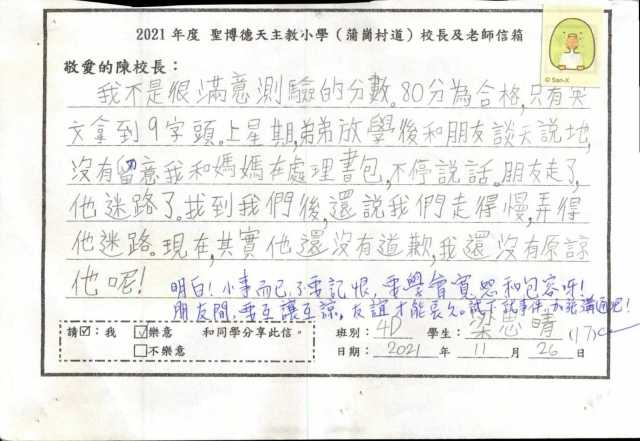 2021 年度 聖博德天主教小學（蒲崗村道）校長及老師信箱
© San-X
敬愛的陳校長：
我不是很滿意測驗的分數。80分為合格,只有英
文拿到9字頭。上星期,弟弟放學後和朋友談天說地,
沒有留意我和媽媽在處理書包,不停說話。朋友走了,
他迷路了。找到我們後,還說我們走得慢,弄得
他迷路。現在,其實他還沒有道歉,我還沒有原諒
他呢!
明白!小事而已,不要記恨,要學會寬恕和包容呀!
朋友間,要互讓互諒,友誼才能長久。試下就事件,加強溝通吧!
請☑：我 ☑樂意 和同學分享此信。 班別：4D 學生：梁思晴 (17)
□不樂意 日期：2021 年 11 月 26 日